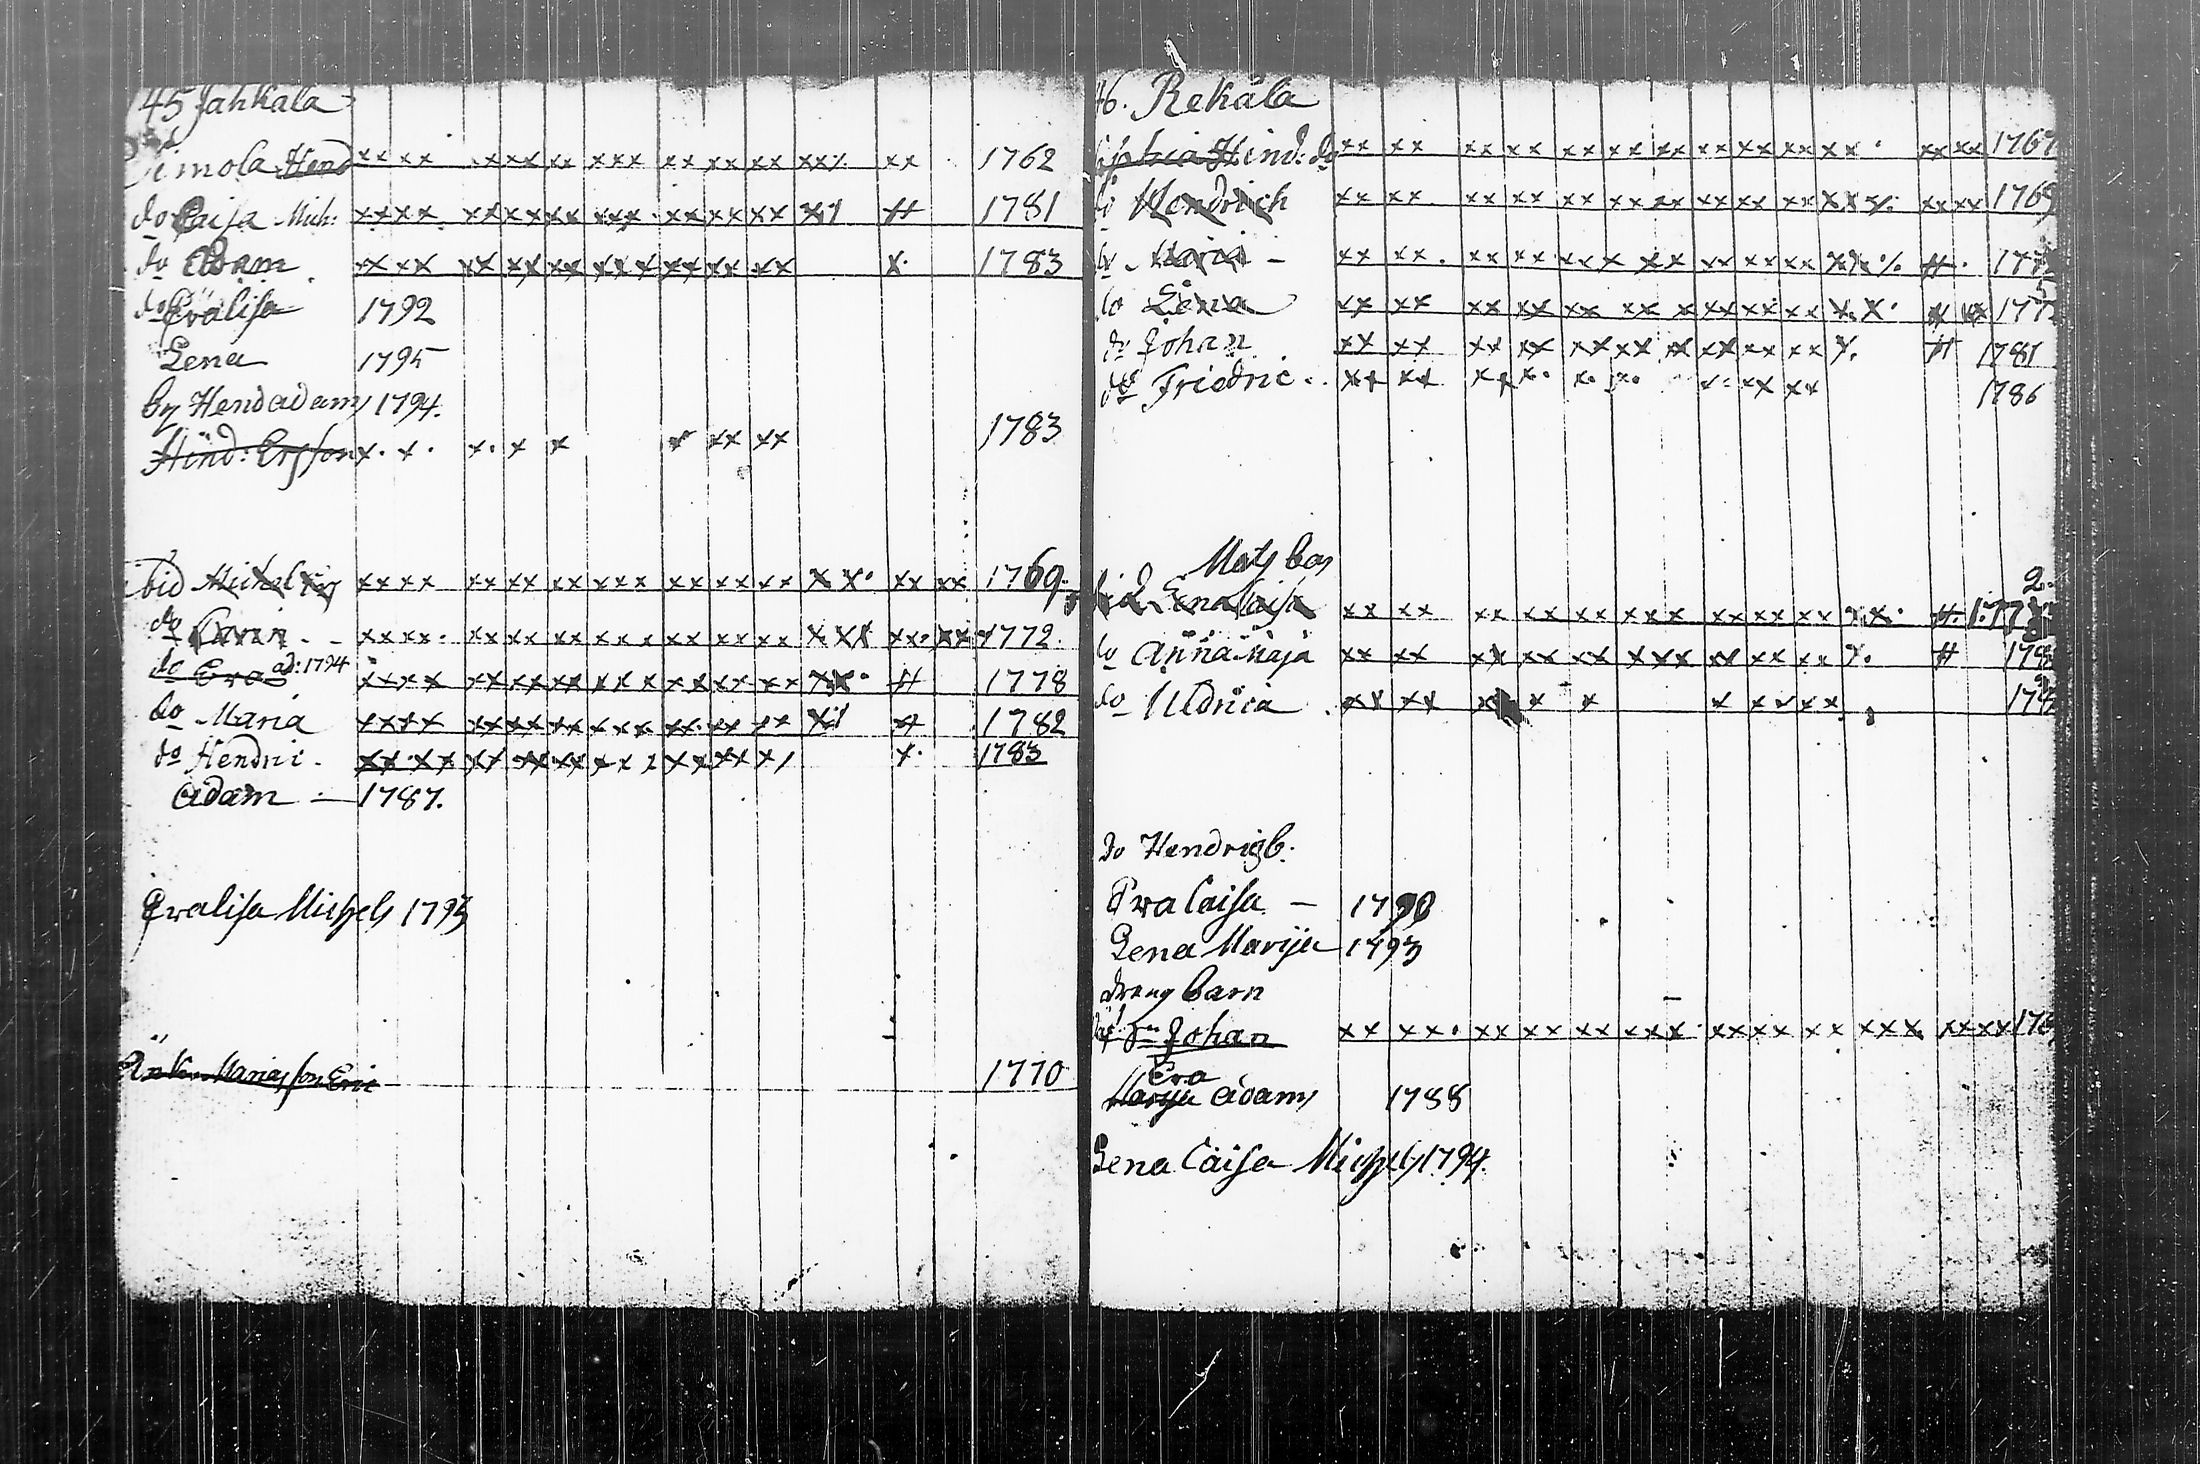 45 Jahkala
Simola Hend xx xx xxx xx xxx xx xx xx xx% xx 1762
do Caisa Mich: xxxx xx xx xx xxx xx xx xx # 1781
do Adam xxx xx xx xx xxx xx xx xx x. 1783
do Evalisa 1792
Lena 1795
by Hendadams 1794.
Hind: Ersson x. x. x. x x x xx xx 1783
Ibid Michel xxxx xx xx xx xxx xx xx xx x x. xx xx 1769.
do xxxx. xx xx xx xxx xx xx xx xxx xx. xx 1772.
do Eva ad: 1794 xxxx xx xx xx xxx xx xx xx xx. # 1778
do Maria xxxx xx xx xx xxx xx. xx xx # 1782
do Hendric. xx.xx xx xx xx xxx xx xx x, x. 1783
Adam — 1787.
Evalisa Michels 1793
Änk. Marias son Eric 1770
46. Rekäla
Hind: do xx xx xx xx xx xx xx xx xx xx xx . xx xx 1767
do Hendrich xx xx xx xx xx xx xx xx xx xx xx%. xx xx 1769
do Maria - xx xx. xx xx xx x xx xx xx xx xx% #.
do Lena xx xx xx xx xx xx x xx xx xx x.x. # xx
do Johan xx xx xx xx xx xx xx xx xx xx x. # 1781
do Friedric.. xx xx xx x. x. x. x. xx xx 1786
Mats barn
Ibid Lena Caisa xx xx xx xx xx xx xx xx xx xx x.x. #.
do Anna Maja xx xx xx xx xx xxx xx xx xx x. #
do Uldrica . xx xx x x x x x x x x
do Hendrigb.
Eva Caisa — 1790
Lena Marija 1793
dreng barn
Johan xx xx. xx xx xx xxx. xx xx xx xxx xx xx
Eva
Marija Adams 1788
Lena Caisa Michels 1794.